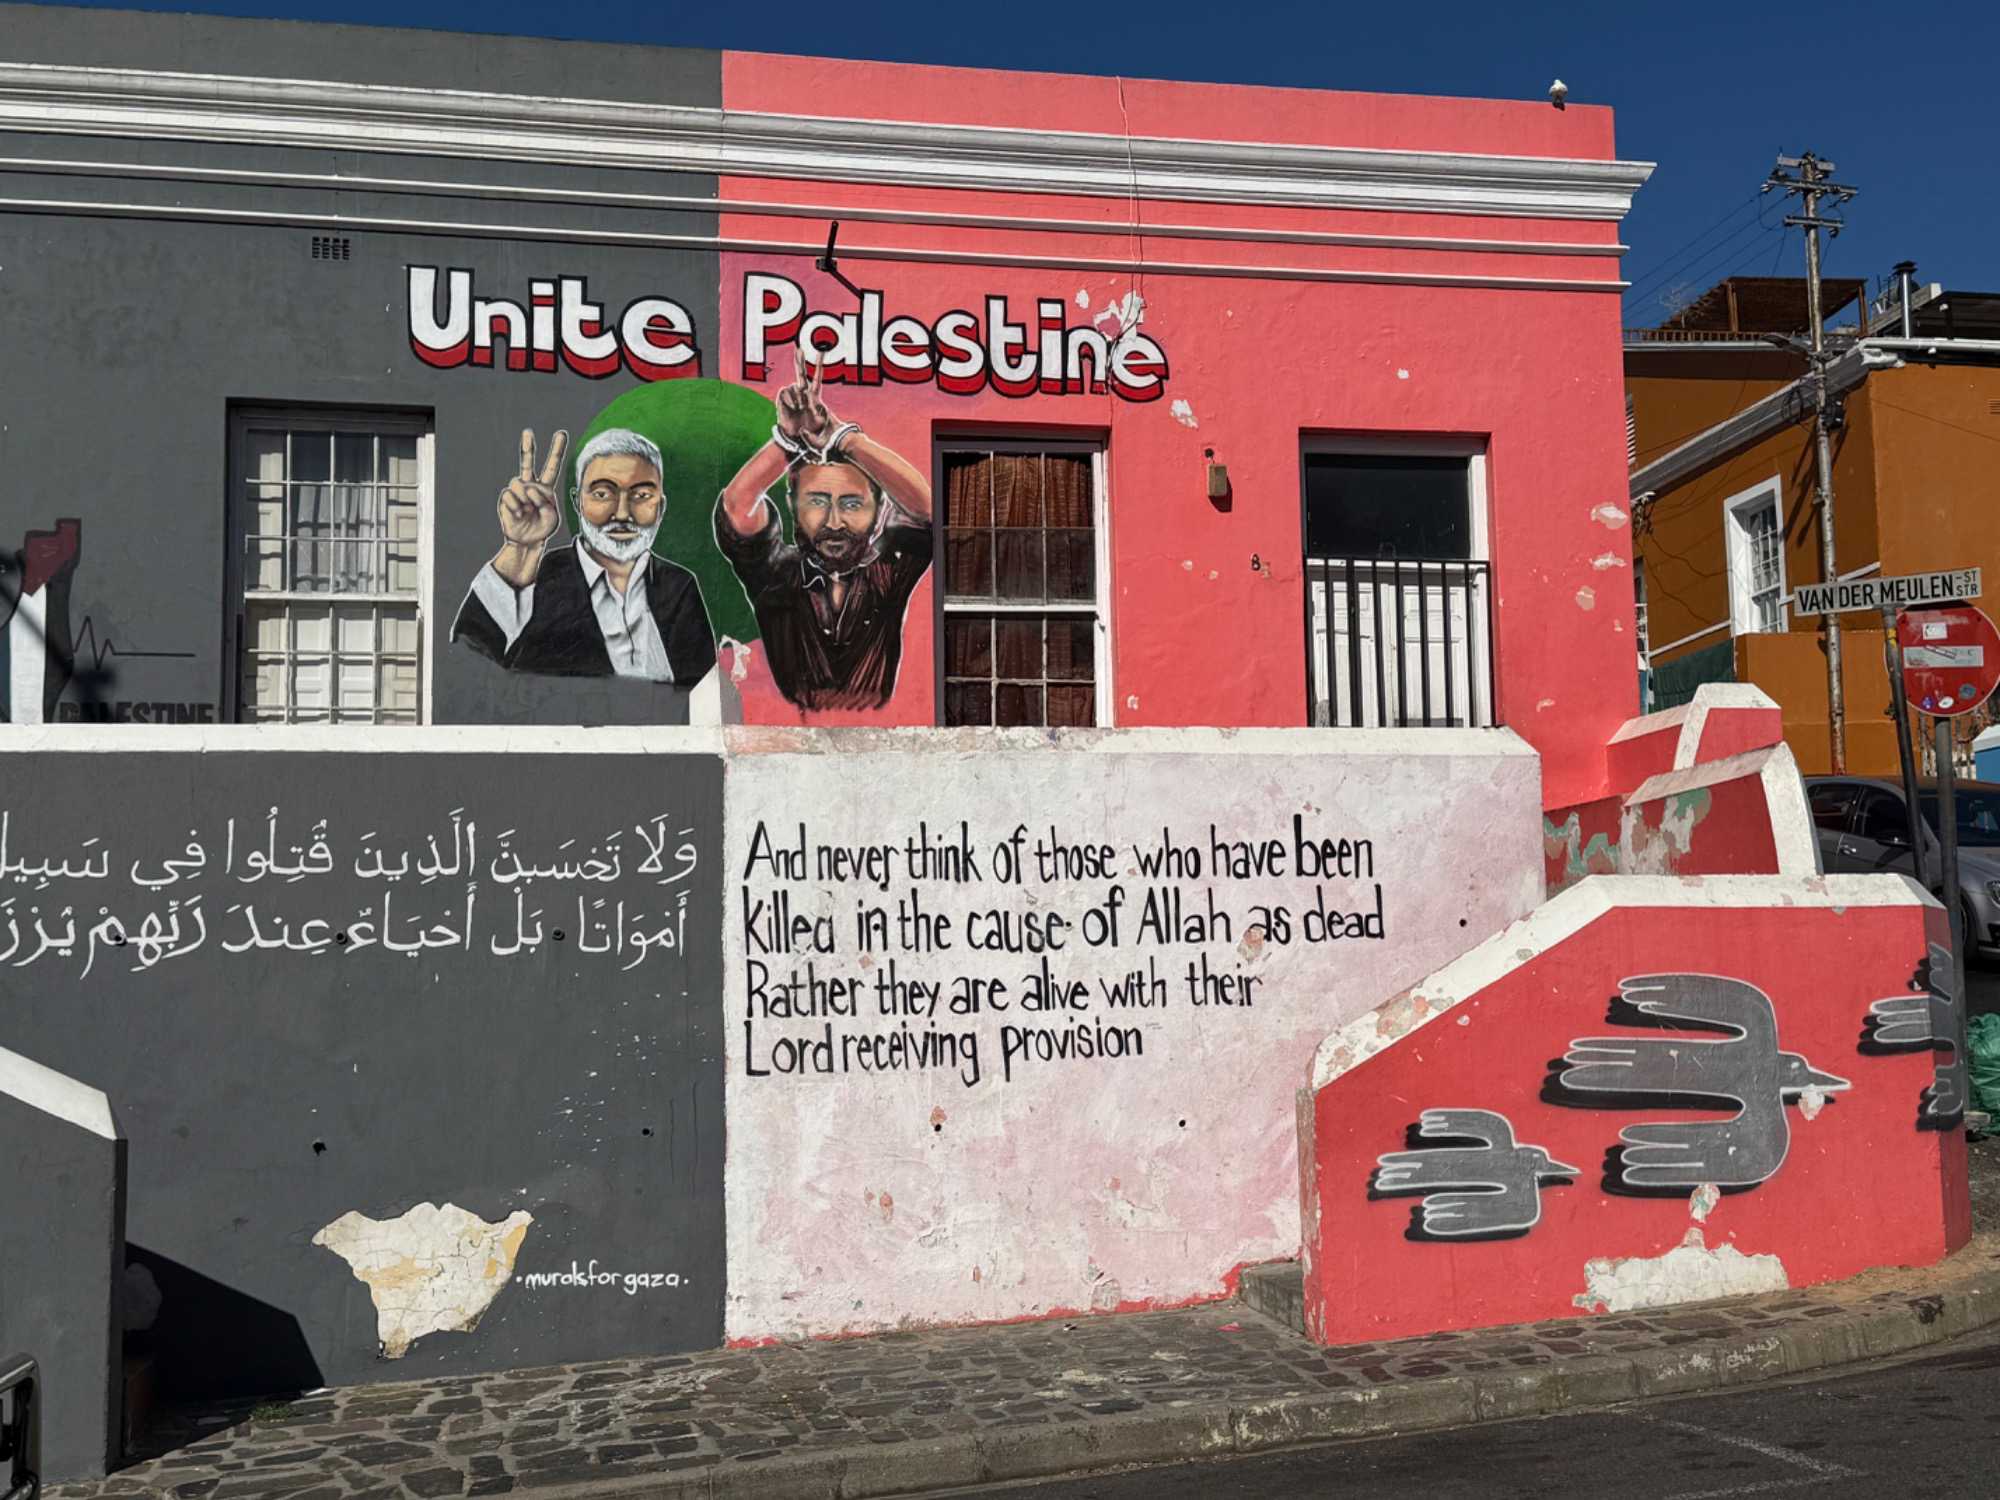 Unite Palestine
PALESTINE
وَلَا تَحْسَبَنَّ الَّذِينَ قُتِلُوا فِي سَبِيل
أَمْوَاتًا بَلْ أَحْيَاءٌ عِندَ رَبِّهِمْ يُرْزَ
And never think of those who have been
killed in the cause of Allah as dead
Rather they are alive with their
Lord receiving provision
·muralsforgaza·
VAN DER MEULEN ST
STR
8